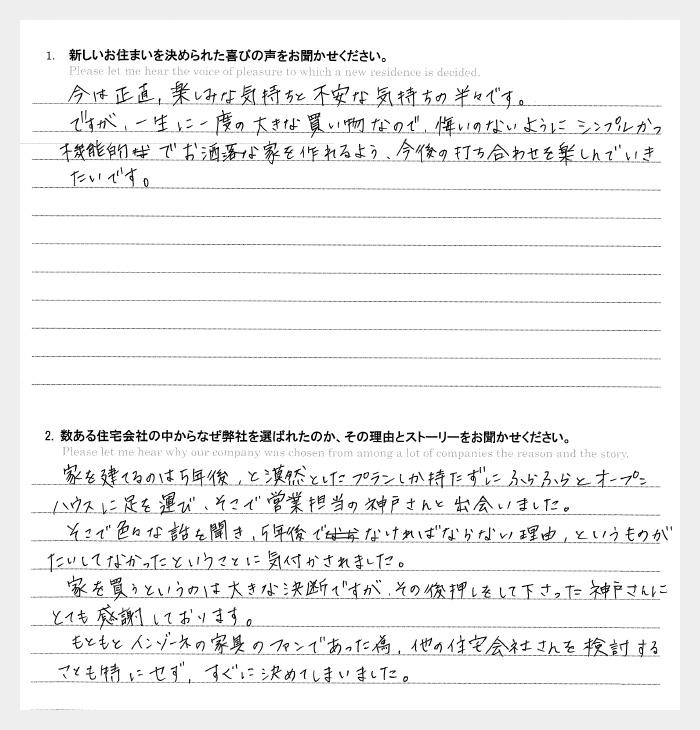 1. 新しいお住まいを決められた喜びの声をお聞かせください。
Please let me hear the voice of pleasure to which a new residence is decided.
今は正直、楽しみな気持ちと不安な気持ちの半々です。
ですが、一生に一度の大きな買い物なので、悔いのないようにシンプルかつ
機能的でお洒落な家を作れるよう、今後の打ち合わせを楽しんでいき
たいです。
2. 数ある住宅会社の中からなぜ弊社を選ばれたのか、その理由とストーリーをお聞かせください。
Please let me hear why our company was chosen from among a lot of companies the reason and the story.
家を建てるのは5年後、と漠然としたプランしか持たずにふらふらとオープン
ハウスに足を運び、そこで営業担当の神戸さんと出会いました。
そこで色々な話を聞き、5年後でなければならない理由、というものが
たいしてなかったということに気付かされました。
家を買うというのは大きな決断ですが、その後押しをして下さった神戸さんに
とても感謝しております。
もともとインゾーネの家具のファンであった為、他の住宅会社さんを検討する
ことも特にせず、すぐに決めてしまいました。